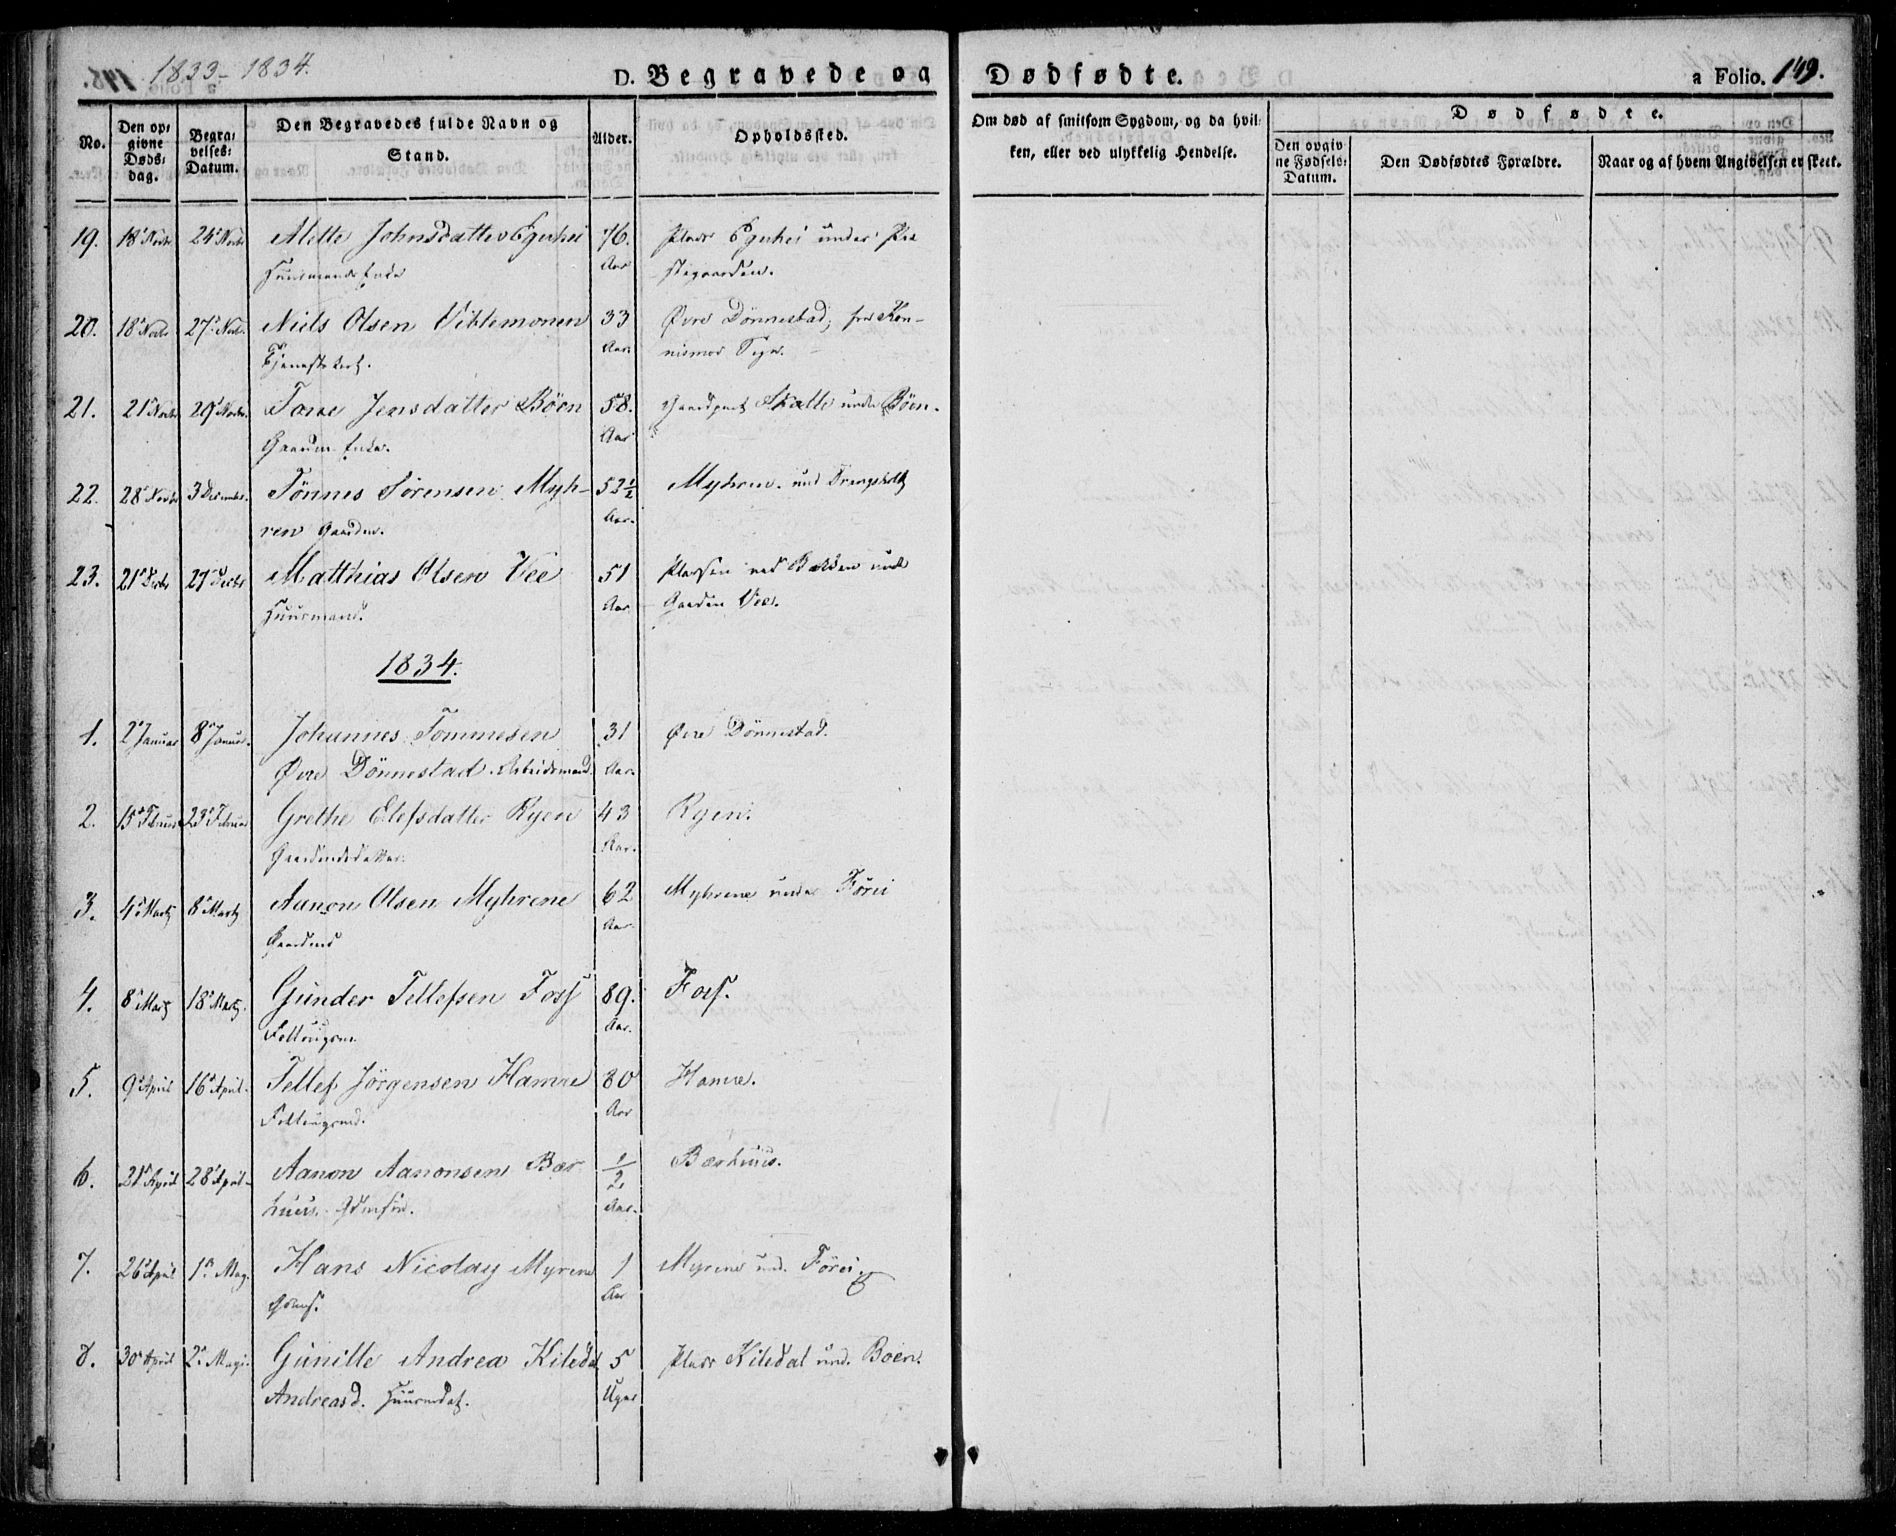 1833-1834.
D. Begravede og Dødfødte.
a Folio. 149.
No.
Den opgivne Dødsdag.
Begravelses-Datum.
Den Begravedes fulde Navn og Stand.
Alder.
Opholdssted.
Om død af smitsom Sygdom, og da hvilken, eller ved ulykkelig Hendelse.
Dødfødte.
Den opgivne Fødsels-Datum.
Den Dødfødtes Forældre.
Naar og af hvem Angivelsen er skeet.
19. 18 Novbr 24 Novbr Alette Johnsdatter Eguhei 76. Plads Eguhei under Præ
Huusmands Enke Aar stegaarden.
20. 18 Novbr 27 Novbr Niels Olsen Viblemonen 33 Øvre Dönnestad, fra Kon-
Tjenestekarl. Aar nismoe Sogn.
21. 21 Novbr 29 Novbr Tone Jensdatter Böen 58. Gaardpart Skatte under Böen.
Gaardm. Enke. Aar
22. 28 Novbr 3 December Tönnes Sörensen Myh- 52½ Myhren und
ren Gaardm. Aar.
23. 21 Decbr 27 Decbr Matthias Olsen Vee 51 Pladsen ved Bækken und
Huusmand. Aar Gaarden Vee.
1834.
1. 2 Januar 8 Januar. Johannes Tommesen 31 Øvre Dönnestad.
Øvre Dönnestad. Arbeidsmand. Aar.
2. 15 Februar 23 Februar Grethe Elefsdatter Ryen 43 Ryen.
Gaardmdsdatter. Aar.
3. 4 Marts 8 Marts Aanon Olsen Myhrene 62 Myhrene under Förei
Gaardmd Aar.
4. 8 Marts 18 Marts. Gunder Tellefsen Foss 89. Foss.
Föderaadsm. Aar.
5. 9 April 16 April. Tellef Jörgensen Hamre 80 Hamre.
Aar
6. 21 April 28 April Aanon Aanonsen Bær 1/2 Bærhuus.
huus. Gdmsön. Aar.
7. 26 April 1 May. Hans Nicolay Myrene 1 Myrene und. Förei
Gdms. Aar
8. 30 April 2 Maji. Gunille Andrea Kiledal 5 Plads Kiledal und. Boen.
Andreasd. Huusmdat. Uger